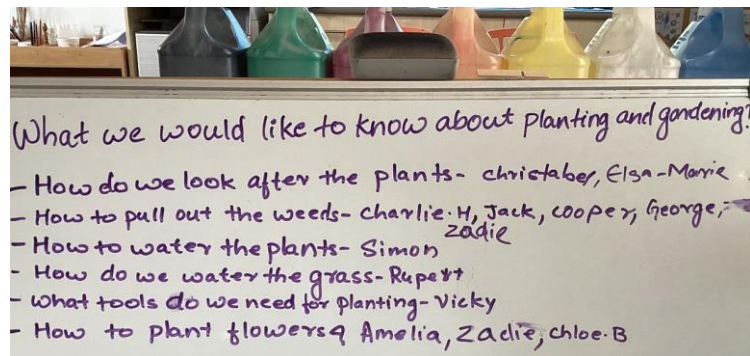 What we would like to know about planting and gardening?
- How do we look after the plants- christabel, Elsa-Marie
- How to pull out the weeds- Charlie.H, Jack, cooper, George,
zadie
- How to water the plants- Simon
- How do we water the grass- Rupert
- what tools do we need for planting- Vicky
- How to plant flowers Amelia, Zadie, chloe.B